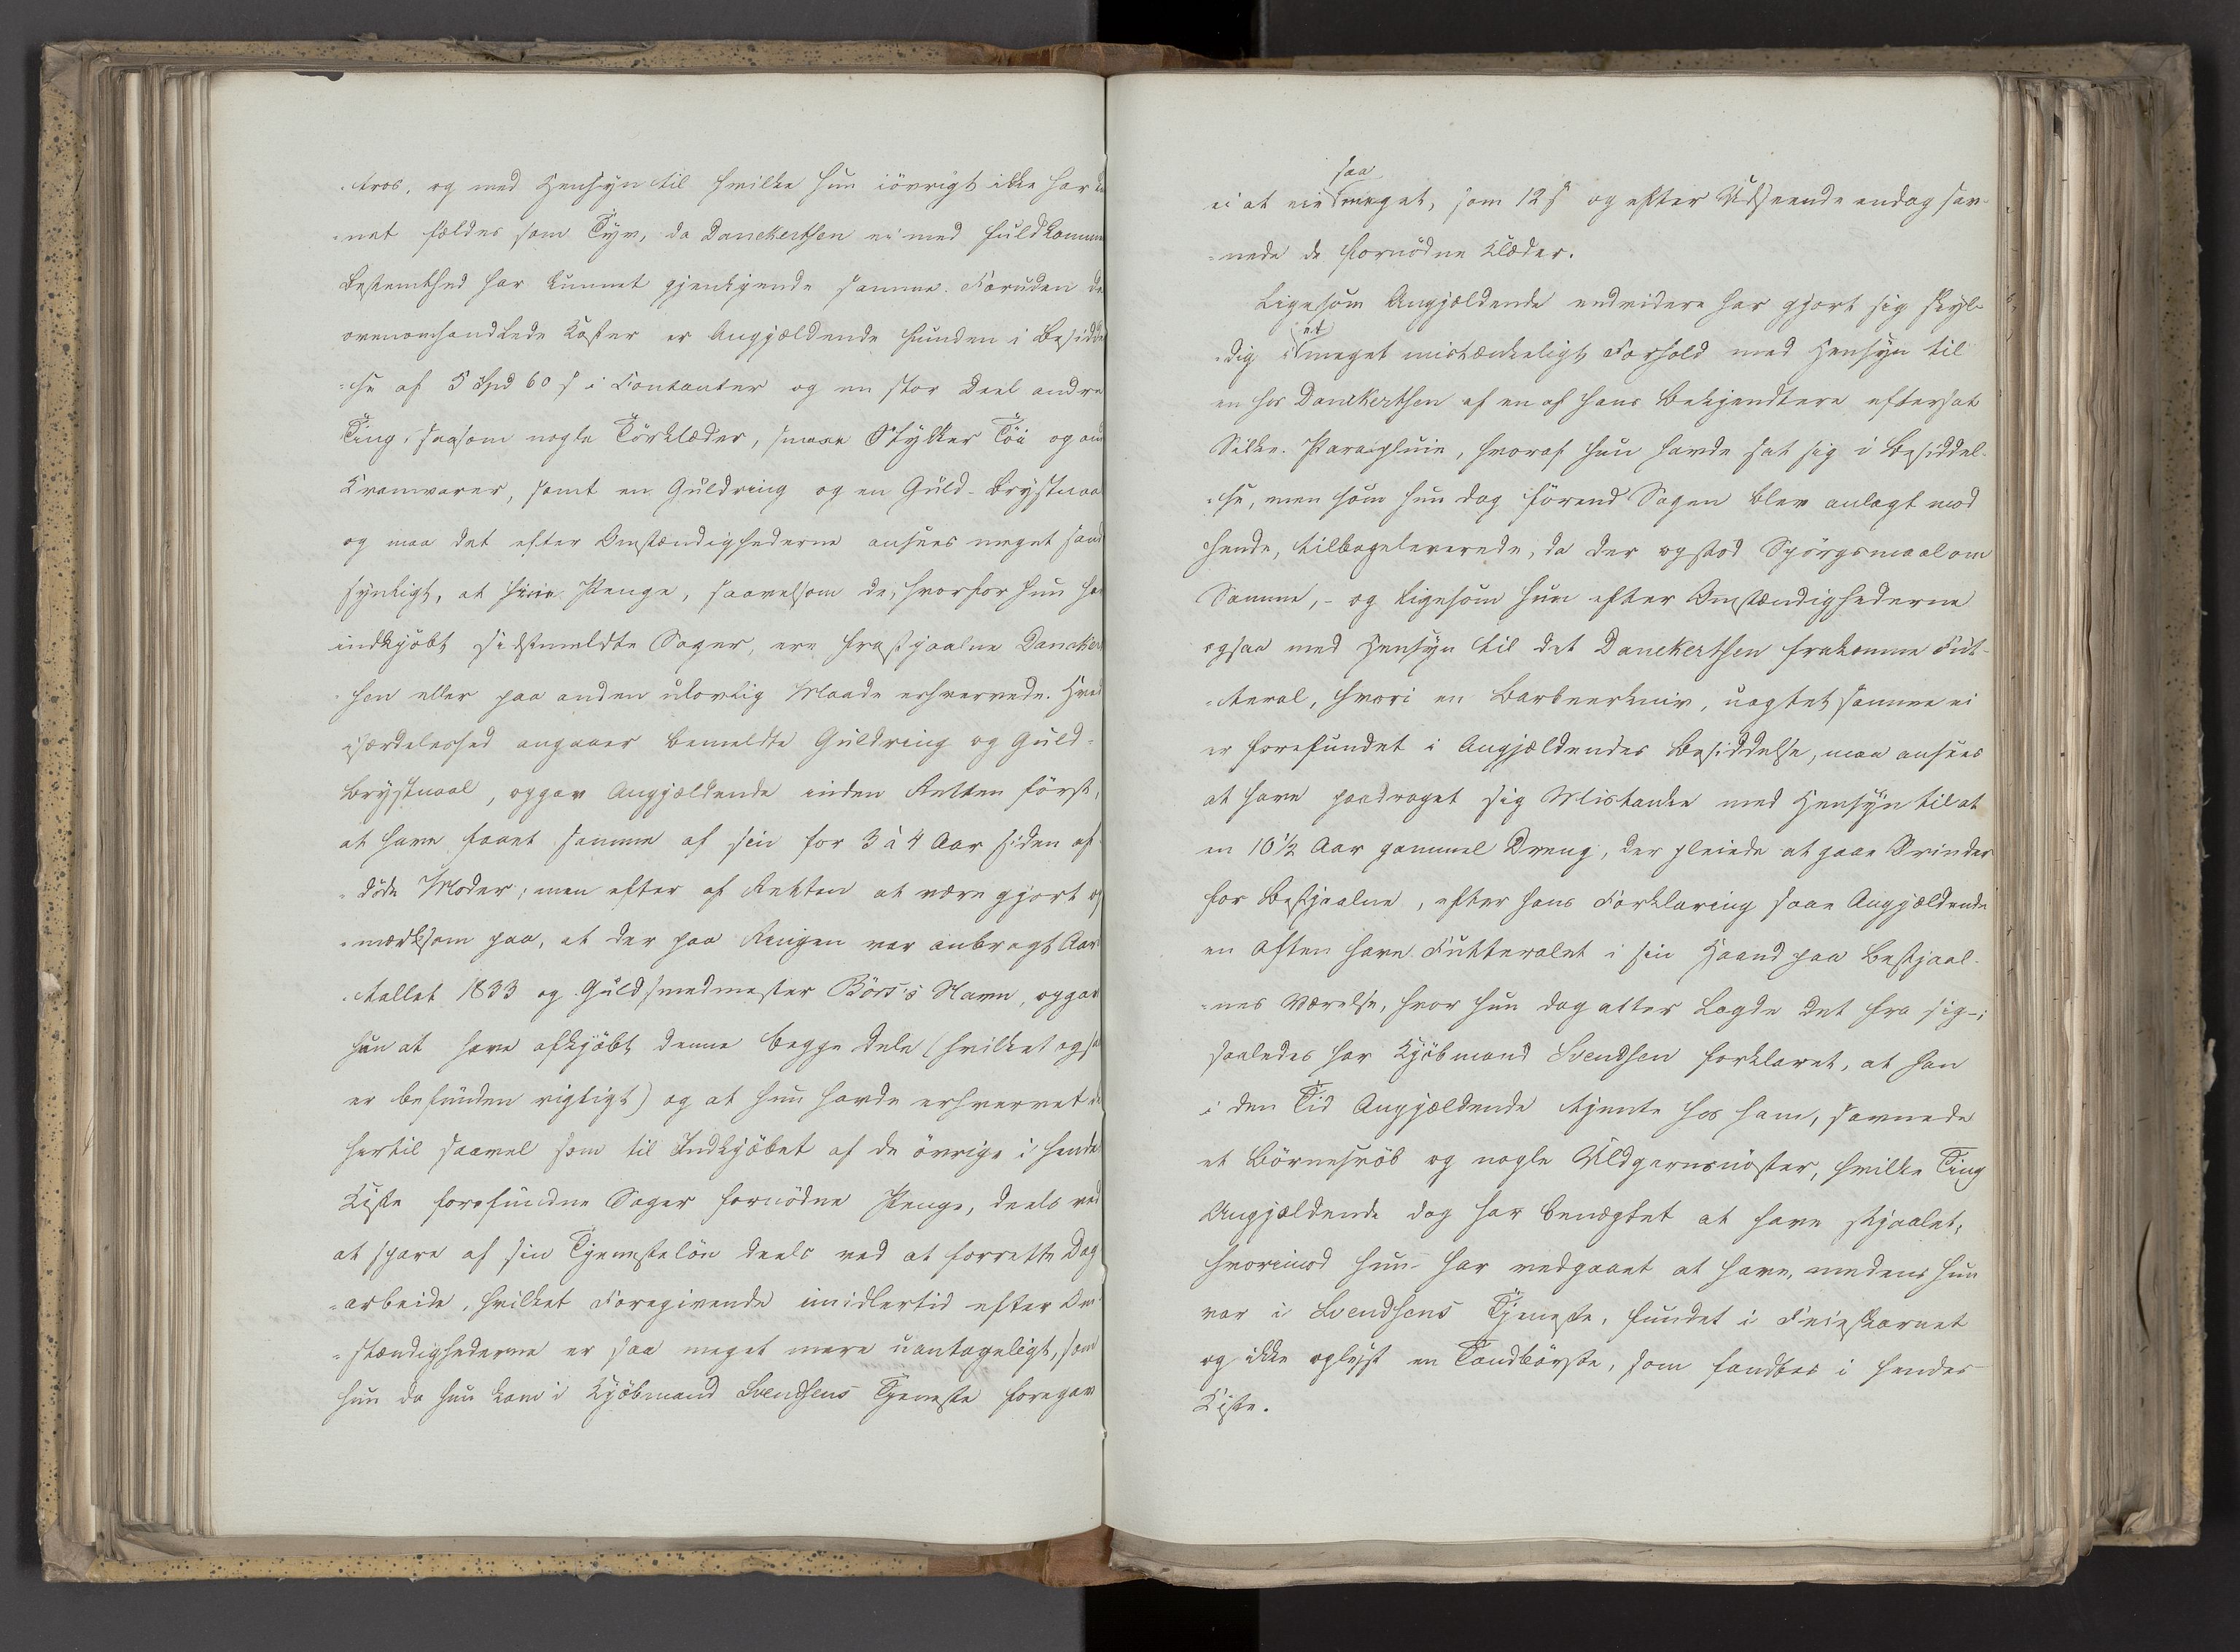 -tros, og med Hensyn til hvilke hun iövrigt ikke har
-net fældes som Tyv, da Danckertsen ei med fuldkommen
Bestemthed har kunnet gjenkjende samme. Foruden de
ovenomhandlede Koster er Angjældende funden i Besiddel
-se af 5 Spd 60 s i Contanter og en stor Deel andre
Ting, saasom nogle Törklæder, smaa Stykker Töi og
Kramvarer, samt en Guldring og en Guld-Brystnaal
og maa det efter Omstændighederne ansees meget sand
synligt, at hine Penge, saavelsom de, hvorfor hun har
indkjöbt sidstmeldte Sager, ere frastjaalne Dancker
-sen eller paa anden ulovlig Maade erhvervede. Hvad
isærdeleshed angaaer bemeldte Guldring og Guld-
Brystnaal, opgav Angjældende inden Retten först,
at have faaet samme af sin for 3 à 4 Aar siden af
-döde Moder; men efter af Retten at være gjort op
-mærksom paa, at der paa Ringen var anbragt Aars
-tallet 1833 og Guldsmedmester Börs's Navn, opgav
hun at have afkjöbt denne begge Dele (hvilket ogsaa
er befunden rigtigt) og at hun havde erhvervet de
hertil saavel som til Indkjöbet af de övrige i hendes
Kiste forefundne Sager fornödne Penge, deels ved
at spare af sin Tjenestelön deels ved at forrette Dag
-arbeide, hvilket Foregivende imidlertid efter Om
-stændighederne er saa meget mere uantageligt, som
hun da hun kom i Kjöbmand Svendsens Tjeneste foregav
saa
ei at eie meget, som 12 s og efter Udseende endog sav-
-nede de fornödne Klæder.
Ligesom Angjældende endvidere har gjort sig skyl-
et
-dig i meget mistænkeligt Forhold med Hensyn til
en hos Danckertsen af en af hans Bekjendtere eftersat
Silke-Parapluie, hvoraf hun havde sat sig i Besiddel-
-se, men som hun dog förend Sagen blev anlagt mod
hende, tilbageleverede, da der opstod Spörgsmaal om
Samme, - og ligesom hun efter Omstændighederne
ogsaa med Hensyn til det Danckertsen frakomne Fut-
-teral, hvori en Barbeerkniv, uagtet samme ei
er forefundet i Angjældendes Besiddelse, maa ansees
at have paadraget sig Mistanke med Hensyn til at
en 10 1/2 Aar gammel Dreng, der pleiede at gaae Ærinder
for Bestjaalne, efter hans Forklaring saae Angjældende
en Aften have Futteralet i sin Haand paa Bestjaal-
-nes Værelse, hvor hun dog atter lagde det fra sig-;
saaledes har Kjöbmand Svendsen forklaret, at han
i den Tid Angjældende tjente hos ham, savnede
et Börne og nogle Uldgarnsnöster, hvilke Ting
Angjældende dog har benægtet at have stjaalet,
hvorimod hun har vedgaaet at have, medens hun
var i Svendsens Tjeneste, fundet i Feieskarnet
og ikke oplyst en Tandbörste, som fandtes i hendes
Kiste.